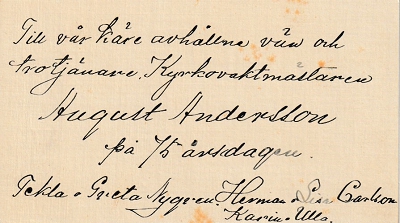 Till vår käre avhållne vän och
trotjänare, Kyrkovaktmästaren
August Andersson
på 75 årsdagen.
Tekla o Greta Nygren, Herman o Lisa Carlson
Karin o Ulla.